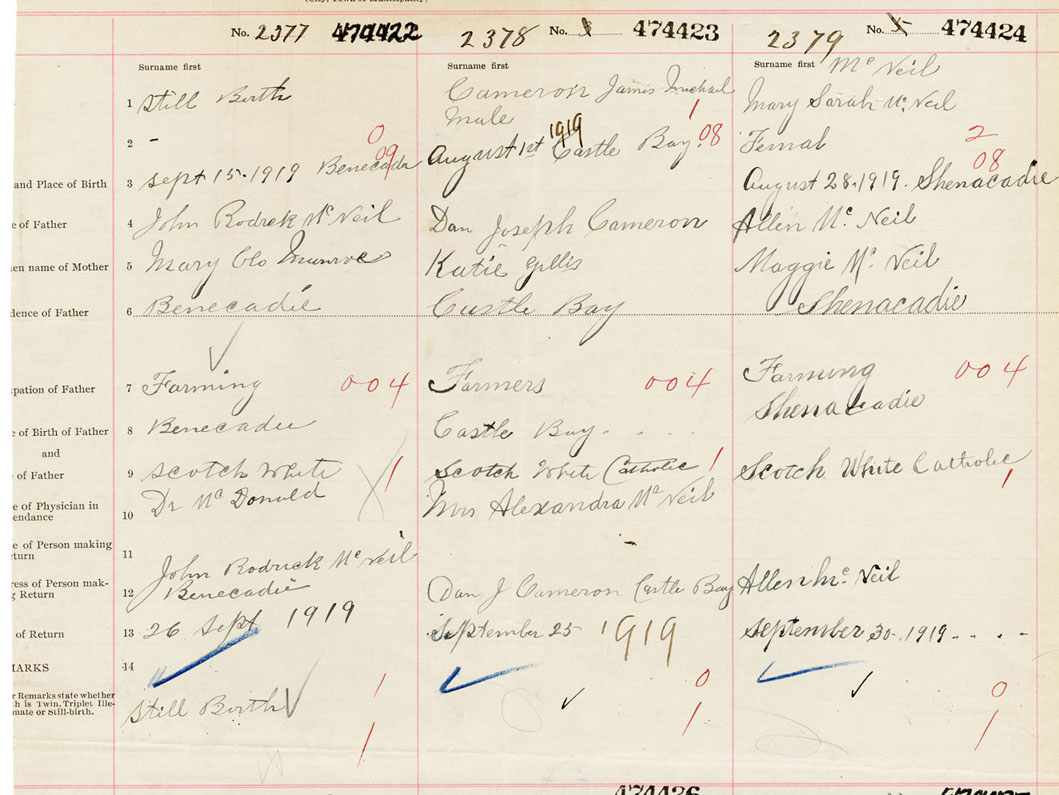 (City, Town or Municipality)
No. 2377 474422
2378 No. 474423
2379 No. 474424
Surname first
Surname first
Surname first Mc Neil
1 Still Birth
Cameron James Michael
Mary Sarah Mc Neil
2 -
0
Male
1
Femal
2
and Place of Birth
3 sept 15.1919 Benecadie
09
August 1st 1919 Castle Bay. 08
August 28.1919. Shenacadie
08
e of Father
4 John Rodrek Mc Neil
Dan Joseph Cameron
Allen Mc Neil
en name of Mother
5 Mary Clo Munroe
Katie Gillis
Maggie Mc Neil
dence of Father
6 Benecadie
Castle Bay
Shenacadie
pation of Father
7 Farming 004
Farmers 004
Farmung 004
e of Birth of Father
8 Benecadie
Castle Bay
Shenacadie
and
of Father
9 scotch White 1
Scotch White Catholic 1
Scotch White Catholic 1
e of Physician in
endance
10 Dr Mc Donald
Mrs Alexandra Mc Neil
e of Person making
eturn
11 John Rodrick Mc Neil
ress of Person mak-
g Return
12 Benecadie
Dan J Cameron Castle Bay
Allen Mc Neil
of Return
13 26 Sept 1919
September 25 1919
September 30.1919
MARKS
14
r Remarks state whether
h is Twin, Triplet Ille-
mate or Still-birth.
Still Birth
1
0
0
1
1
1
474426